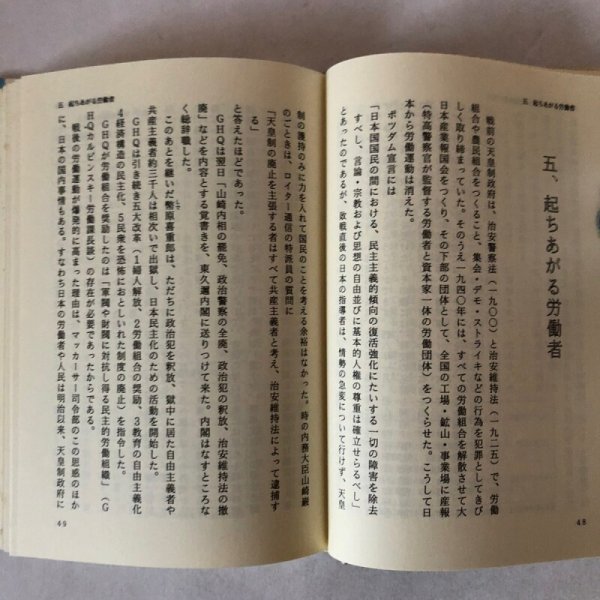 五　起ちあがる労働者
五、起ちあがる労働者
戦前の天皇制政府は、治安警察法（一九〇〇）と治安維持法（一九二五）で、労働
組合や農民組合をつくること、集会・デモ・ストライキなどの行為を犯罪としてきび
しく取り締まっていた。そのうえ一九四〇年には、すべての労働組合を解散させて大
日本産業報国会をつくり、その下部の団体として、全国の工場・鉱山・事業場に産報
（特高警察官が監督する労働者と資本家一体の労働団体）をつくらせた。こうして日
本から労働運動は消えた。
ポツダム宣言には
「日本国国民の間における、民主主義的傾向の復活強化にたいする一切の障害を除去
すべし、言論・宗教および思想の自由並びに基本的人権の尊重は確立せらるべし」
とあったのであるが、敗戦直後の日本の指導者は、情勢の急変について行けず、天皇
48
五　起ちあがる労働者
制の護持のみに力を入れて国民のことを考える余裕はなかった。時の内務大臣山崎巌
のごときは、ロイター通信の特派員の質問に
「天皇制の廃止を主張する者はすべて共産主義者と考え、治安維持法によって逮捕す
る」
と答えたほどであった。
GHQは翌日「山崎内相の罷免、政治警察の全廃、政治犯の釈放、治安維持法の撤
廃」などを内容とする覚書きを、東久邇内閣に送りつけて来た。内閣はなすところな
く総辞職した。
このあとを継いだ幣原喜重郎は、ただちに政治犯を釈放、獄中に居た自由主義者や
共産主義者約三千人は相次いで出獄し、日本民主化のための活動を開始した。
GHQは引き続き五大改革（1婦人解放、2労働組合の奨励、3教育の自由主義化
4経済構造の民主化、5民衆を恐怖におとしいれた制度の廃止）を指令した。
GHQが労働組合を奨励したのは「軍閥や財閥に対抗し得る民主的労働組織」（G
HQカルピンスキー労働課長談）の存在が必要であったからである。
戦後の労働運動が爆発的に高まった理由は、マッカーサー司令部のこの思惑のほか
に、日本の国内事情もある。すなわち日本の労働者や人民は明治以来、天皇制政府に
49